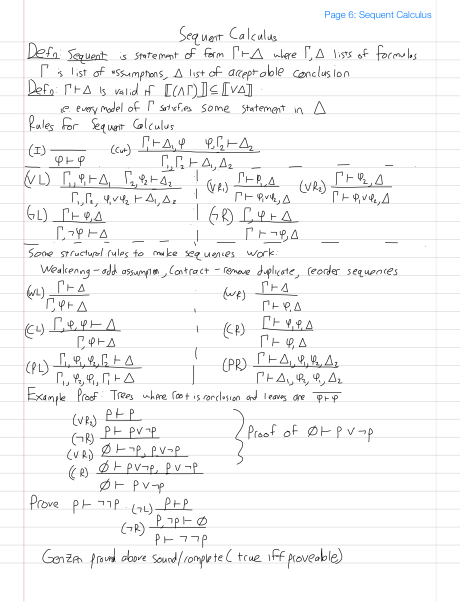 Page 6: Sequent Calculus
Sequent Calculus
Defn: Sequent is statement of form Γ⊢Δ where Γ,Δ lists of formulas
Γ is list of assumptions, Δ list of acceptable conclusion
Defn: Γ⊢Δ is valid if ⟦(ΛΓ)⟧⊆⟦VΔ⟧
ie every model of Γ satisfies some statement in Δ
Rules for Sequent Calculus
(I) ―― / φ⊢φ (Cut) Γ₁⊢Δ₁,φ φ,Γ₂⊢Δ₂ / Γ₁,Γ₂⊢Δ₁,Δ₂
(∨L) Γ₁,φ₁⊢Δ₁ Γ₂,φ₂⊢Δ₂ / Γ₁,Γ₂,φ₁∨φ₂⊢Δ₁,Δ₂ (∨R₁) Γ⊢φ₁,Δ / Γ⊢φ₁∨φ₂,Δ (∨R₂) Γ⊢φ₂,Δ / Γ⊢φ₁∨φ₂,Δ
(¬L) Γ⊢φ,Δ / Γ,¬φ⊢Δ (¬R) Γ,φ⊢Δ / Γ⊢¬φ,Δ
Some structural rules to make sequences work:
Weakening - add assumption, Contract - remove duplicate, reorder sequences
(WL) Γ⊢Δ / Γ,φ⊢Δ (WR) Γ⊢Δ / Γ⊢φ,Δ
(CL) Γ,φ,φ⊢Δ / Γ,φ⊢Δ (CR) Γ⊢φ,φ,Δ / Γ⊢φ,Δ
(PL) Γ₁,φ₁,φ₂,Γ₂⊢Δ / Γ₁,φ₂,φ₁,Γ₂⊢Δ (PR) Γ⊢Δ₁,φ₁,φ₂,Δ₂ / Γ⊢Δ₁,φ₂,φ₁,Δ₂
Example Proof: Trees where root is conclusion and leaves are φ⊢φ
(∨R₂) p⊢p
(¬R) p⊢p∨¬p
(∨R₁) ∅⊢¬p, p∨¬p
(CR) ∅⊢p∨¬p, p∨¬p
∅⊢p∨¬p
Proof of ∅⊢p∨¬p
Prove p⊢¬¬p (¬L) p⊢p
(¬R) p,¬p⊢∅
p⊢¬¬p
Genzen proved above sound/complete (true iff proveable)